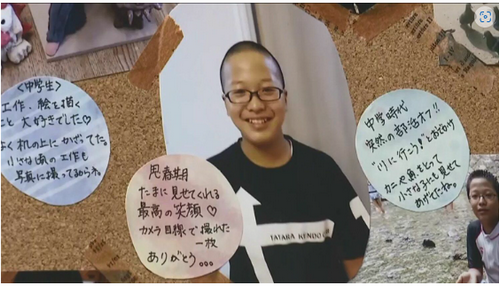 〈中学生〉
工作、絵を描く
こと 大好きでした♡
よく机の上に かざってた。
小さな頃の工作も
写真に撮ってあるね。
思春期
たまに見せてくれる
最高の笑顔♡
カメラ目線で撮れた
一枚
ありがとう。。。
TATARA KENDO
中学時代
突然の部活オフ!!
"川に行う!"とおでかけ
カニや魚をとって
小さな子にも見せて
あげてたね。